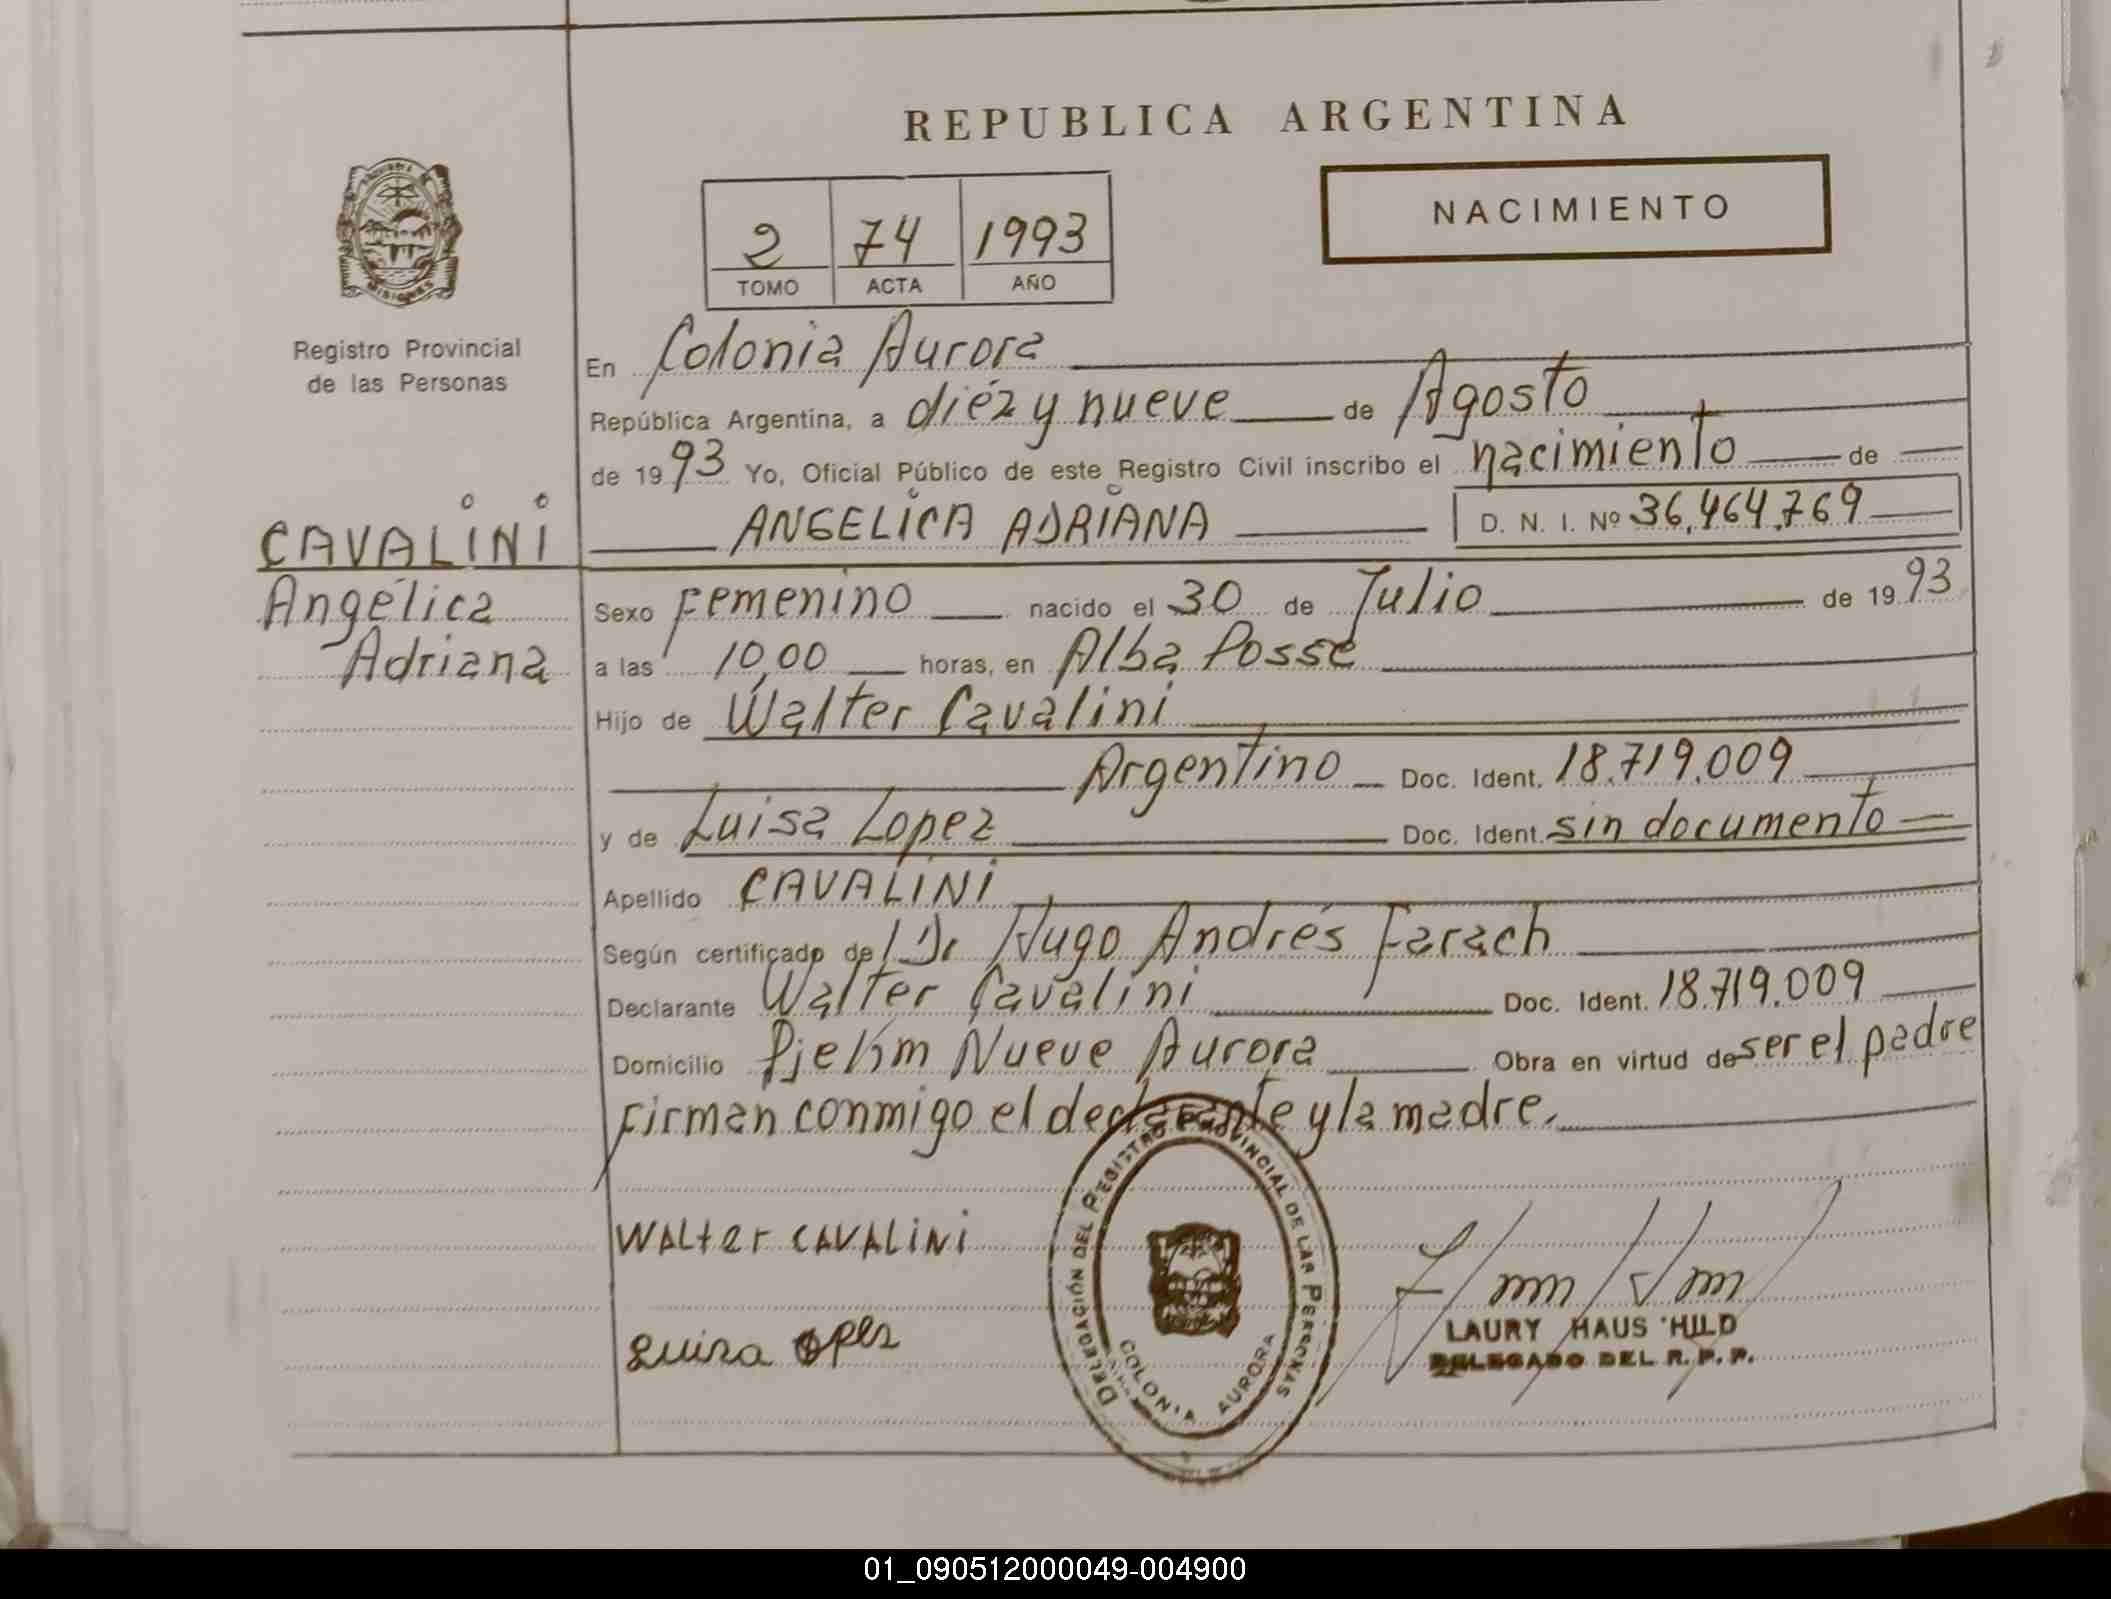 REPUBLICA ARGENTINA
NACIMIENTO
2 74 1993
TOMO ACTA AÑO
MISIONES
Registro Provincial
de las Personas
En Colonia Aurora
República Argentina, a diéz y nueve de Agosto
de 1993 Yo, Oficial Público de este Registro Civil inscribo el nacimiento de
ANGELICA ADRIANA D. N. I. Nº 36.464.769
CAVALINI
Angélica
Adriana
Sexo Femenino nacido el 30 de Julio de 1993
a las 10,00 horas, en Alba Posse
Hijo de Walter Cavalini
Argentino Doc. Ident. 18.719.009
y de Luisa Lopez Doc. Ident. sin documento
Apellido CAVALINI
Según certificado de Dr Hugo Andrés Farach
Declarante Walter Cavalini Doc. Ident. 18.719.009
Domicilio Nueve Aurora Obra en virtud de ser el padre
Firman conmigo el declarante y la madre.
WALter CAVALiNi
Luisa opes
DELEGACIÓN DEL REGISTRO PROVINCIAL DE LAS PERSONAS
COLONIA AURORA
LAURY HAUS HILD
DELEGADO DEL R. P. P.
01_090512000049-004900